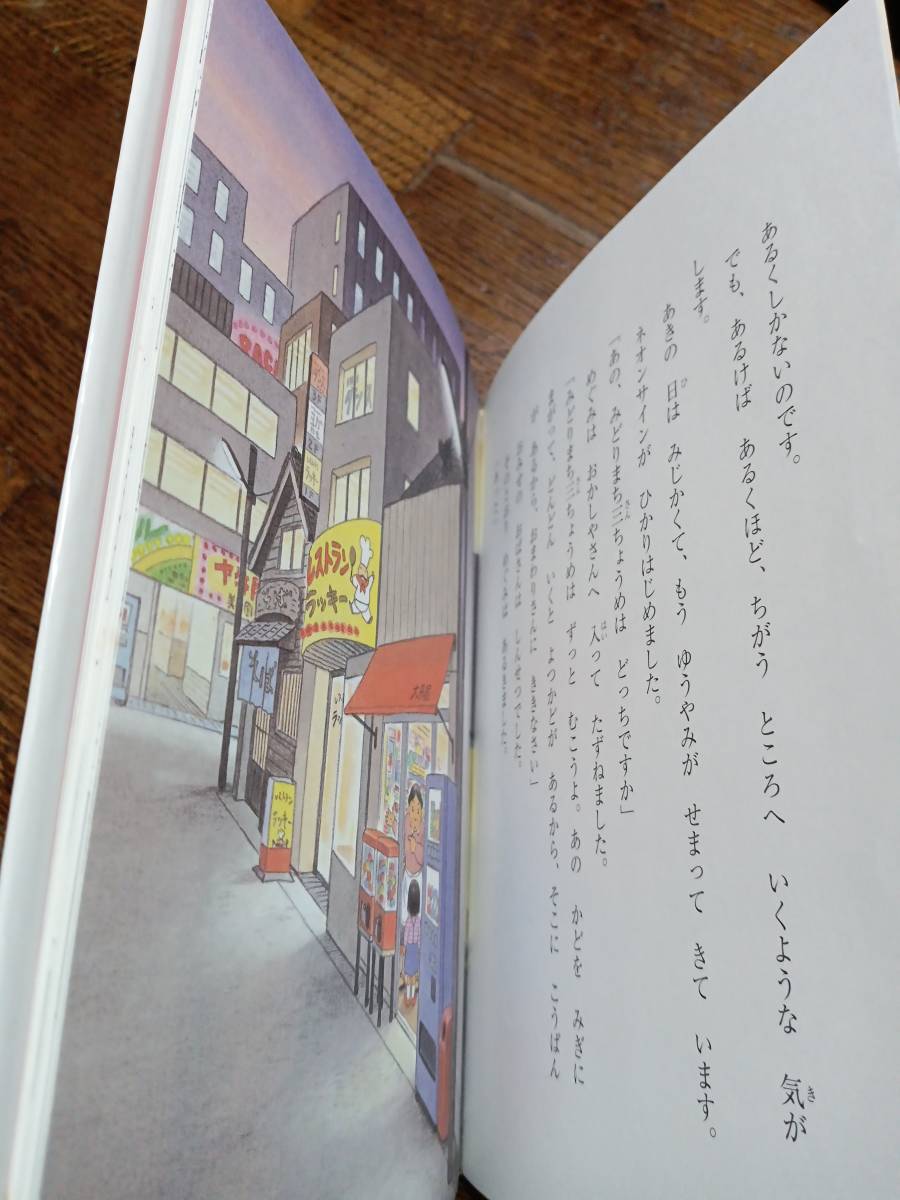 あるくしかないのです。
でも、あるけば あるくほど、ちがう ところへ いくような 気が
します。
あきの 日は みじかくて、もう ゆうやみが せまって きて います。
ネオンサインが ひかりはじめました。
「あの、みどりまち三ちょうめは どっちですか」
めぐみは おかしやさんへ 入って たずねました。
「みどりまち三ちょうめは ずっと むこうよ。あの かどを みぎに
まがって、どんどん いくと よつかどが あるから、そこに こうばん
が あるから、おまわりさんに ききなさい」
おみせの おばさんは しんせつでした。
めぐみは あるきました。
レストラン
ラッキー
レストラン
ラッキー